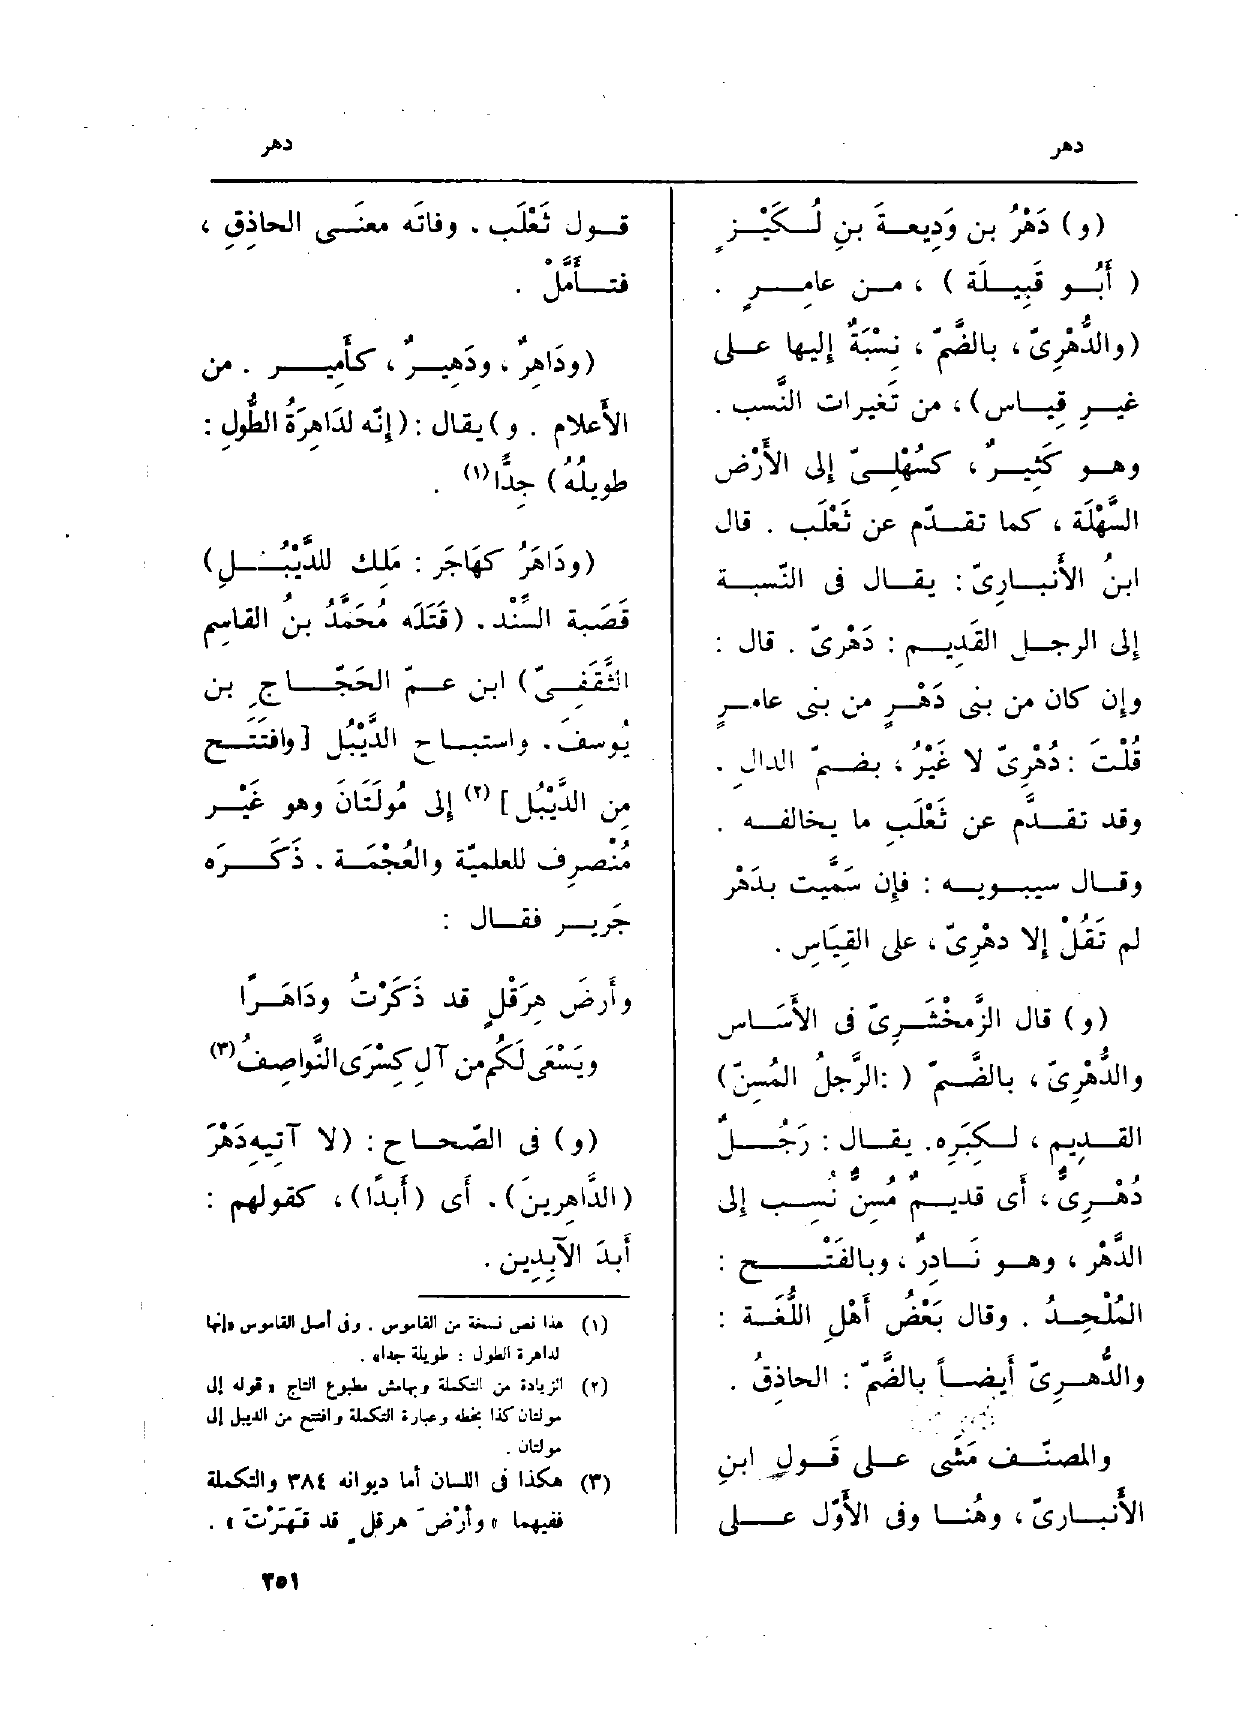 دهر
دهر
(و) دَهْرُ بن وَدِيعةَ بنِ لُكَيْزٍ
(أَبُو قَبِيلَة) ، من عامِرٍ .
(والدُّهْرِىّ ، بالضَّمّ ، نِسْبَةٌ إليها على
غيرِ قِياس) ، من تَغيرات النَّسب .
وهو كَثِيرٌ ، كسُهْلِىّ إلى الأَرْض
السَّهْلَة ، كما تقدّم عن ثَعْلَب . قال
ابنُ الأَنبارِىّ : يقال فى النّسبة
إلى الرجل القَدِيم : دَهْرىّ . قال :
وإن كان من بنى دَهْرٍ من بنى عامرٍ
قُلْتَ : دُهْرِىّ لا غَيْرُ ، بضمّ الدالِ .
وقد تقدَّم عن ثَعْلَبٍ ما يخالفه .
وقال سيبويه : فإن سَمَّيت بدَهْر
لم تَقُلْ إلا دهْرِىّ ، على القِيَاس .
(و) قال الزَّمخْشَرِىّ فى الأَسَاس
والدُّهْرِىّ ، بالضَّمّ ( : الرَّجلُ المُسِنّ)
القديم ، لكِبَرِه. يقال : رَجُلٌ
دُهْرِىٌّ ، أَى قديمٌ مُسِنٌّ نُسِب إلى
الدَّهْر ، وهو نَادِرٌ ، وبالفَتْح :
المُلْحِدُ . وقال بَعْض أَهْلِ اللُّغَة :
والدُّهرِىّ أَيضاً بالضَّمّ : الحاذِقُ .
والمصنّف مَشَى على قَولِ ابنِ
الأَنبارىّ ، وهُنا وفى الأَوّل على
قول ثَعْلَب . وفاتَه معنَى الحاذِقِ ،
فتأَمَّلْ .
(ودَاهِرٌ ، ودَهِيرٌ ، كأَمِير . من
الأَعلام . و) يقال : (إنّه لدَاهِرَةُ الطُّولِ :
طويلُهُ) جِدًّا (١) .
(ودَاهَرُ كهاجَر : مَلِك للدَّيْبُلِ)
قَصَبة السِّنْد . (قَتَلَه مُحَمَّدُ بنُ القاسِم
الثَّقَفِىّ) ابن عمّ الحَجّاجِ بن
يُوسفَ. واستباح الدَّيْبُل [وافتَتَح
مِن الدَّيْبُل ] (٢) إلى مُولَتَانَ وهو غَيْر
مُنْصرِف للعلميّة والعُجْمَة . ذَكَرَه
جَرير فقال :
وأَرضَ هِرَقْلٍ قد ذَكَرْتُ ودَاهَرًا
ويَسْعَى لَكُم من آلِ كِسْرَى النَّواصِفُ (٣)
(و) فى الصّحاح : (لا آتِيهِ دَهْرَ
(الدَّاهِرِينَ) . أَى (أَبدًا) ، كقولهم :
أَبدَ الآبِدِين .
(١) هذا نص نسخة من القاموس . وفى أصل القاموس « إنها
لداهرة الطول : طويلة جدا» .
(٢) الزيادة من التكملة وبهامش مطبوع التاج « قوله إلى
مولتان كذا بخطه وعبارة التكملة وافتتح من الديبل إلى
مولتان .
(٣) هكذا فى اللسان أما ديوانه ٣٨٤ والتكملة
ففيهما « وأرضَ هرقلٍ قد قَهَرْتَ » .
٣٥١